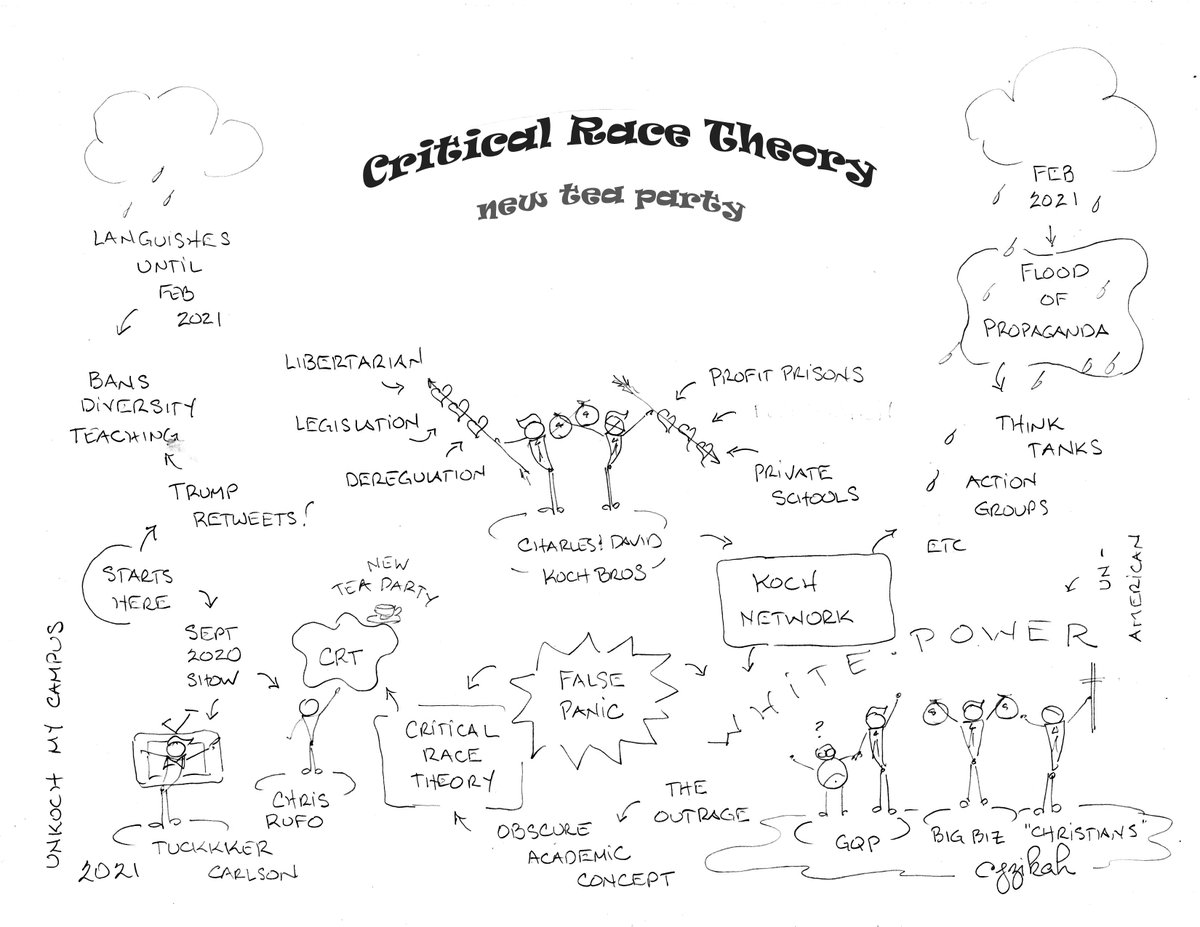 Critical Race Theory
new tea party
LANGUISHES
UNTIL
FEB
2021
BANS
DIVERSITY
TEACHING
TRUMP
RETWEETS!
STARTS
HERE
SEPT
2020
SHOW
TUCKKKER
CARLSON
CHRIS
RUFO
NEW
TEA PARTY
CRT
CRITICAL
RACE
THEORY
OBSCURE
ACADEMIC
CONCEPT
THE
OUTRAGE
FALSE
PANIC
LIBERTARIAN
LEGISLATION
DEREGULATION
PROFIT PRISONS
PRIVATE
SCHOOLS
CHARLES & DAVID
KOCH BROS
KOCH
NETWORK
FEB
2021
FLOOD
OF
PROPAGANDA
THINK
TANKS
ACTION
GROUPS
ETC
UN-
AMERICAN
WHITE POWER
?
GQP
BIG BIZ
"CHRISTIANS"
UNKOCH MY CAMPUS
2021